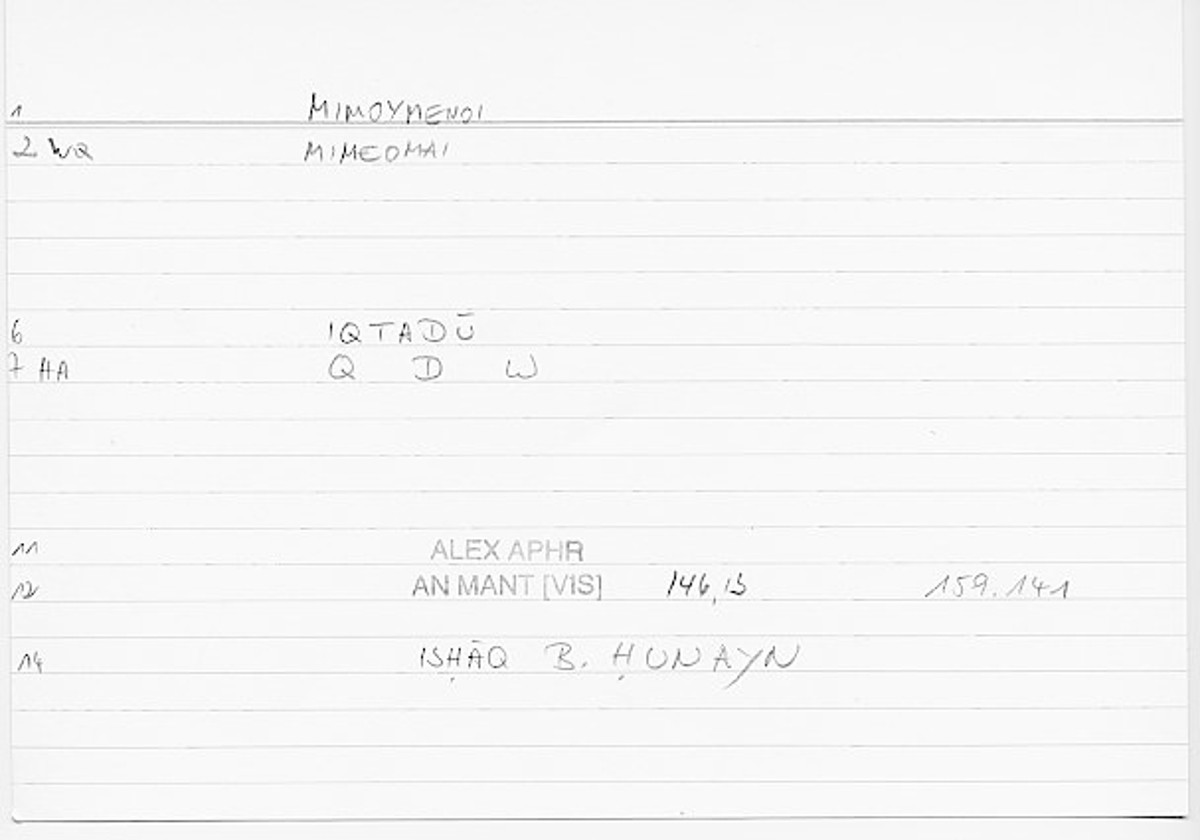 1 ΜΙΜΟΥΜΕΝΟΙ
2 WQ ΜΙΜΕΟΜΑΙ
6 IQTADŪ
7 AA Q D W
11 ALEX APHR
12 AN MANT [VIS] 146,13 159.141
14 ISḤĀQ B. ḤUNAYN